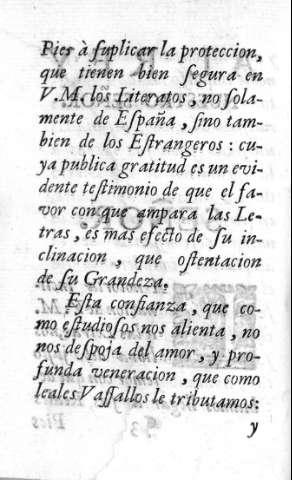 Pies à ſuplicar la proteccion,
que tienen bien ſegura en
V.M. los Literatos, no ſola-
mente de Eſpaña, ſino tam-
bien de los Eſtrangeros: cu-
ya publica gratitud es un evi-
dente teſtimonio de que el fa-
vor con que ampara las Le-
tras, es mas efecto de ſu in-
clinacion, que oſtentacion
de ſu Grandeza.
Eſta confianza, que co-
mo eſtudioſos nos alienta, no
nos deſpoja del amor, y pro-
funda veneracion, que como
leales Vaſſallos le tributamos:
y